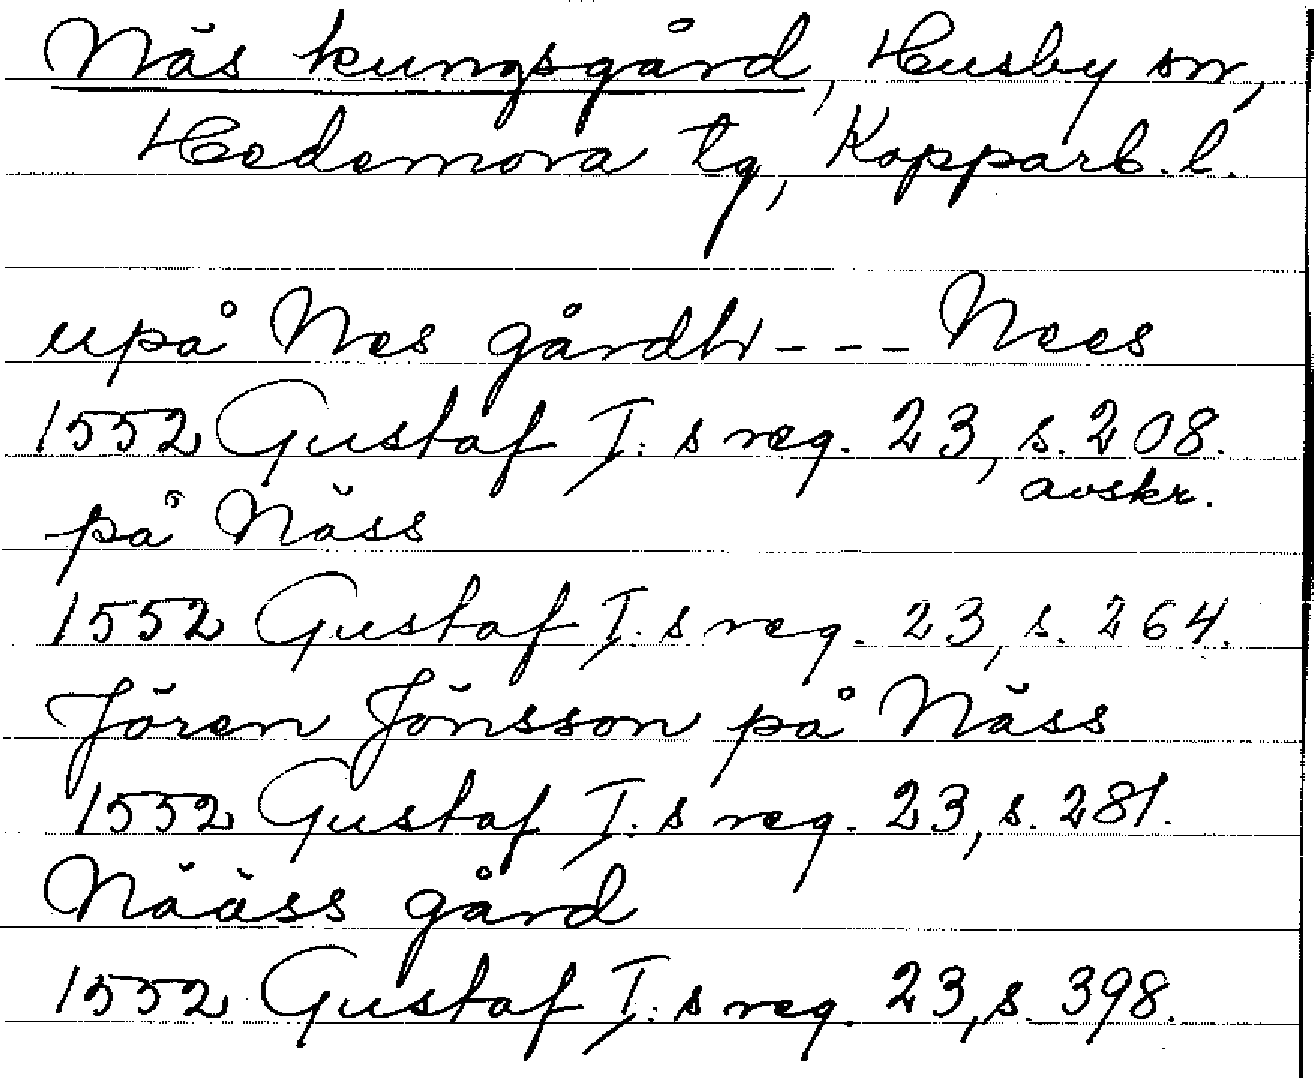 Näs kungsgård, Husby sn,
Hedemora tg, Kopparb. l.
upå Nes gårdh --- Nees
1552 Gustaf I:s reg. 23, s. 208.
avskr.
på Näss
1552 Gustaf I:s reg. 23, s. 264.
Jören Jönsson på Näss
1552 Gustaf I:s reg. 23, s. 281.
Nääss gård
1552 Gustaf I:s reg. 23, s. 398.